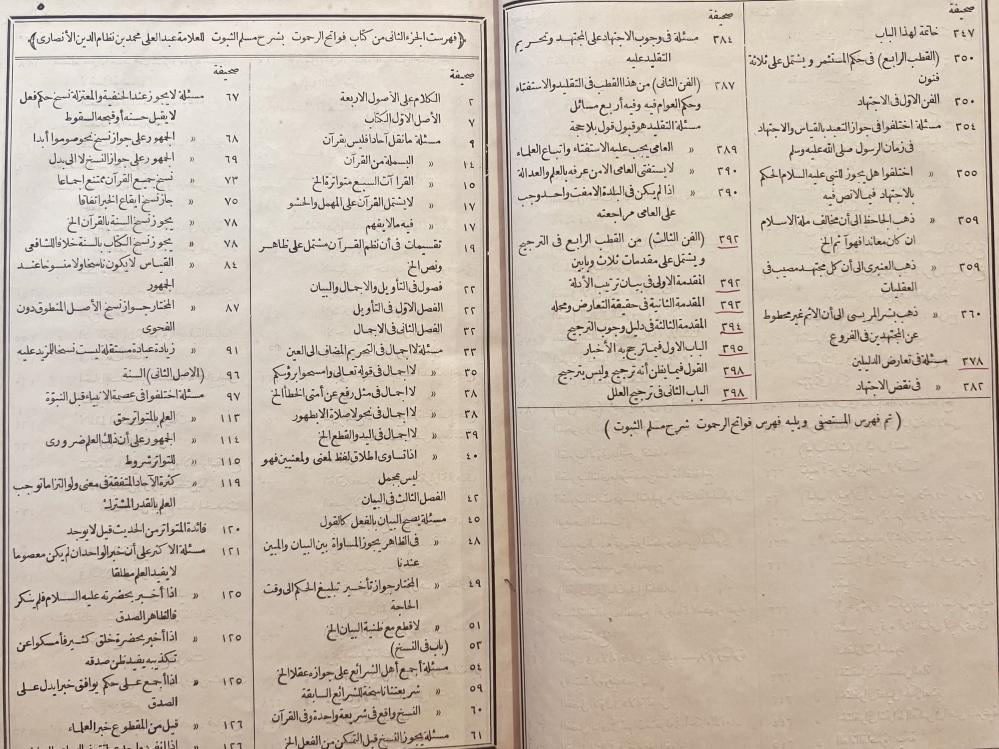 صحيفة
٣٤٧ خاتمة لهذا الباب
٣٥٠ (القطب الرابع) فى حكم المستثمر ويشتمل على ثلاثة
فنون
٣٥٠ الفن الاول فى الاجتهاد
٣٥٤ مسئلة اختلفوا فى جواز التعبد بالقياس والاجتهاد
فى زمان الرسول صلى الله عليه وسلم
٣٥٥ » اختلفوا هل يجوز للنبى عليه السلام الحكم
بالاجتهاد فيما لا نص فيه
٣٥٩ » ذهب الجاحظ الى أن مخالف ملة الاسلام
ان كان معاندا فهو آثم الخ
٣٥٩ » ذهب العنبرى الى أن كل مجتهد مصيب فى
العقليات
٣٦٠ » ذهب بشر المريسى الى أن الاثم غير محطوط
عن المجتهدين فى الفروع
٣٧٨ مسئلة فى تعارض الدليلين
٣٨٢ » فى نقض الاجتهاد
صحيفة
٣٨٤ مسئلة فى وجوب الاجتهاد على المجتهد وتحريم
التقليد عليه
٣٨٧ (الفن الثانى) من هذا القطب فى التقليد والاستفتاء
وحكم العوام فيه وفيه أربع مسائل
مسئلة التقليد هو قبول قول بلا حجة
٣٨٩ » العامى يجب عليه الاستفتاء واتباع العلماء
٣٩٠ » لا يستفتى العامى الا من عرفه بالعلم والعدالة
٣٩٠ » اذا لم يكن فى البلدة الا مفت واحد وجب
على العامى مراجعته
٣٩٢ (الفن الثالث) من القطب الرابع فى الترجيح
ويشتمل على مقدمات ثلاث وبابين
٣٩٢ المقدمة الاولى فى بيان ترتيب الأدلة
٣٩٣ المقدمة الثانية فى حقيقة التعارض ومحله
٣٩٤ المقدمة الثالثة فى دليل وجوب الترجيح
٣٩٥ الباب الاول فيما ترجح به الأخبار
٣٩٨ القول فيما يظن أنه ترجيح وليس بترجيح
٣٩٨ الباب الثانى فى ترجيح العلل
(تم فهرس المستصفى ويليه فهرس فواتح الرحموت شرح مسلم الثبوت)
٥
﴿فهرست الجزء الثانى من كتاب فواتح الرحموت بشرح مسلم الثبوت للعلامة عبد العلى محمد بن نظام الدين الأنصارى﴾
صحيفة
٢ الكلام على الأصول الاربعة
٧ الأصل الاول الكتاب
٩ مسئلة ما نقل آحادا فليس بقرآن
١٤ » البسملة من القرآن
١٥ » القرا آت السبع متواترة الخ
١٧ » لا يشتمل القرآن على المهمل والحشو
١٧ » فيه ما لا يفهم
١٩ تقسيمات فى أن نظم القرآن مشتمل على ظاهر
ونص الخ
٢٢ فصول فى التأويل والاجمال والبيان
٢٢ الفصل الاول فى التأويل
٣٢ الفصل الثانى فى الاجمال
٣٣ مسئلة لا اجمال فى التحريم المضاف الى العين
٣٥ » لا اجمال فى قوله تعالى وامسحوا برؤسكم
٣٨ » لا اجمال فى مثل رفع عن أمتى الخطأ الخ
٣٨ » لا اجمال فى نحو لا صلاة الا بطهور
٣٩ » لا اجمال فى اليد والقطع الخ
٤٠ » اذا تساوى اطلاق لفظ لمعنى ولمعنيين فهو
ليس بمجمل
٤٢ الفصل الثالث فى البيان
٤٥ مسئلة يصح البيان بالفعل كالقول
٤٨ » فى الظاهر يجوز المساواة بين البيان والمبين
عندنا
٤٩ » المختار جواز تأخير تبليغ الحكم الى وقت
الحاجة
٥١ » لا قطع مع ظنية البيان الخ
٥٣ (باب فى النسخ)
٥٤ مسئلة أجمع أهل الشرائع على جوازه عقلا الخ
٥٩ » شريعتنا ناسخة للشرائع السابقة
٦٠ » النسخ واقع فى شريعة واحدة وفى القرآن
٦١ مسئلة يجوز النسخ قبل التمكن من الفعل الخ
صحيفة
٦٧ مسئلة لا يجوز عند الحنفية والمعتزلة نسخ حكم فعل
لا يقبل حسنه أو قبحه السقوط
٦٨ » الجمهور على جواز نسخ نحو صوموا أبدا
٦٩ » الجمهور على جواز النسخ لا الى بدل
٧٣ » نسخ جميع القرآن ممتنع اجماعا
٧٥ » جاز نسخ ايقاع الخبر اتفاقا
٧٨ » يجوز نسخ السنة بالقرآن الخ
٧٨ » يجوز نسخ الكتاب بالسنة خلافا للشافعى
٨٤ » القياس لا يكون ناسخا ولا منسوخا عند
الجمهور
٨٧ » المختار جواز نسخ الأصل المنطوق دون
الفحوى
٩١ » زيادة عبادة مستقلة ليست نسخا للمزيد عليه
٩٦ (الاصل الثانى) السنة
٩٧ مسئلة اختلفوا فى عصمة الانبياء قبل النبوة
١١٣ » العلم بالمتواتر حق
١١٤ » الجمهور على أن ذلك العلم ضرورى
١١٥ » للتواتر شروط
١١٩ » كثرة الآحاد المتفقة فى معنى ولو التزاما توجب
العلم بالقدر المشترك
١٢٠ فائدة المتواتر من الحديث قيل لا يوجد
١٢١ مسئلة الاكثر على أن خبر الواحد ان لم يكن معصوما
لا يفيد العلم مطلقا
١٢٥ » اذا أخبر بحضرته عليه السلام فلم ينكر
فالظاهر الصدق
١٢٥ » اذا أخبر بحضرة خلق كثير فأمسكوا عن
تكذيبه يفيد ظن صدقه
١٢٥ » اذا أجمع على حكم يوافق خبرا يدل على
الصدق
١٢٦ » قيل من المقطوع خبر العلماء
١٢٦ » اذا انفرد واحد